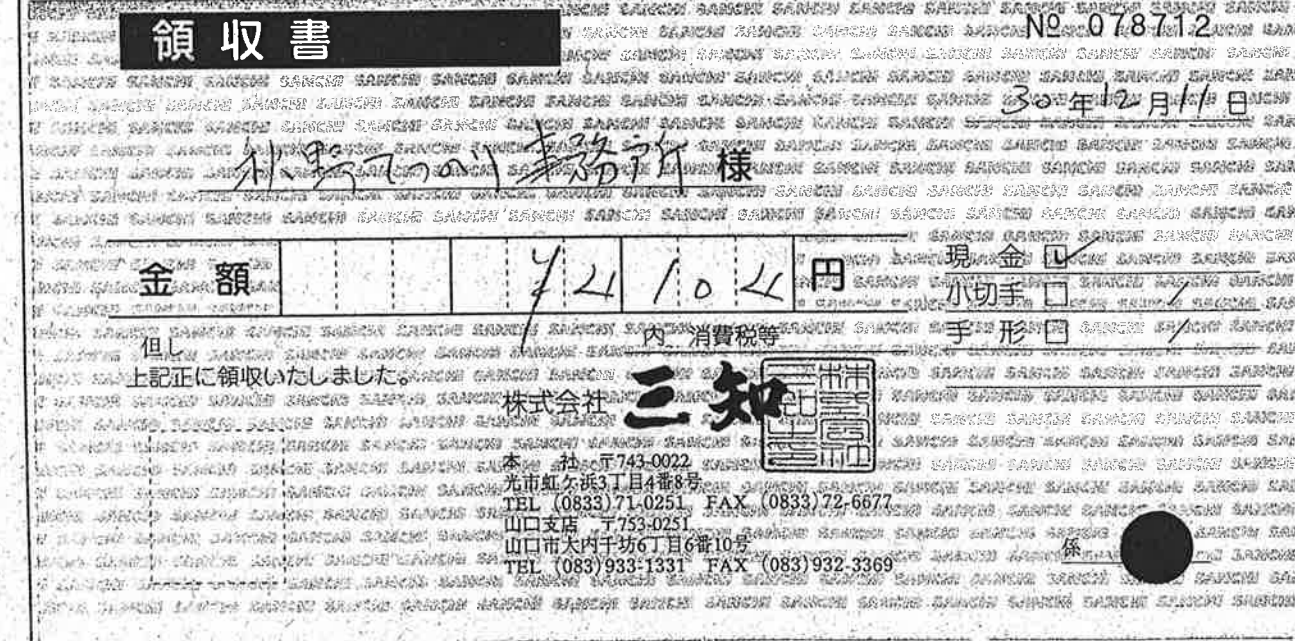 領収書
№ 078712
30年12月11日
秋野てつのり事務所 様
金額 ¥4104円
現金 ☑
小切手 □
手形 □
内 消費税等
但し
上記正に領収いたしました。
株式会社 三知
本社 〒743-0022
光市虹ケ浜3丁目4番8号
TEL (0833)71-0251 FAX (0833)72-6677
山口支店 〒753-0251
山口市大内千坊6丁目6番10号
TEL (083)933-1331 FAX (083)932-3369
係